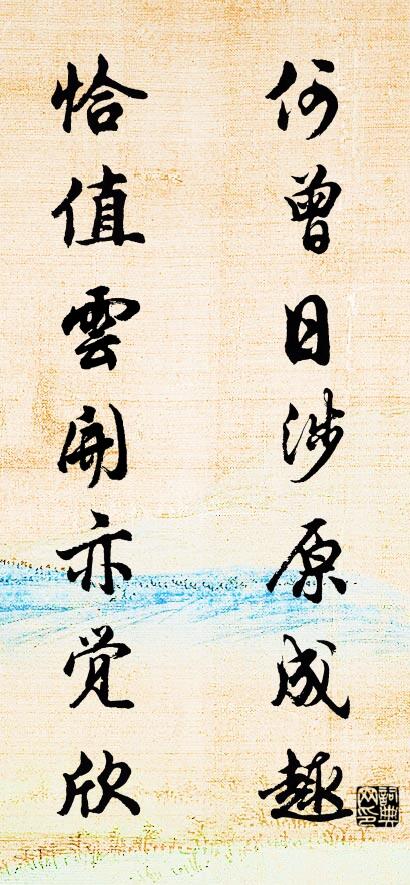 何曾日涉原成趣
恰值雲開亦覺欣
詞典
网印